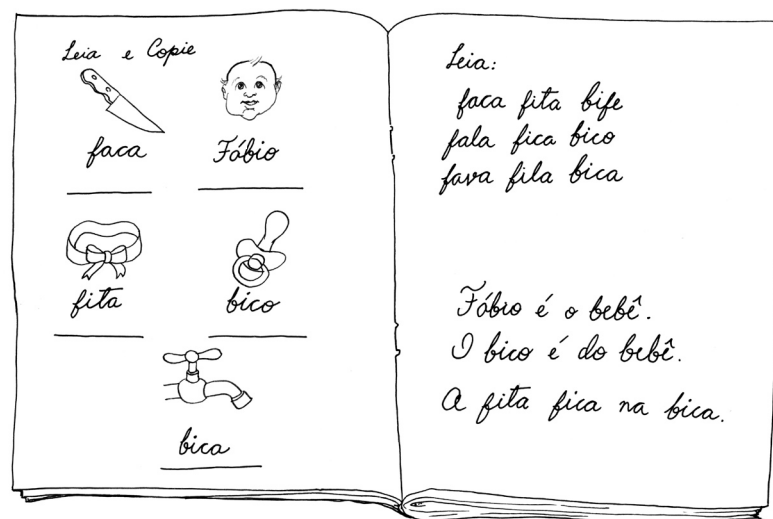 Leia e Copie
faca Fábio
fita bico
bica
Leia:
faca fita bife
fala fica bico
fava fila bica
Fábio é o bebê.
O bico é do bebê.
A fita fica na bica.